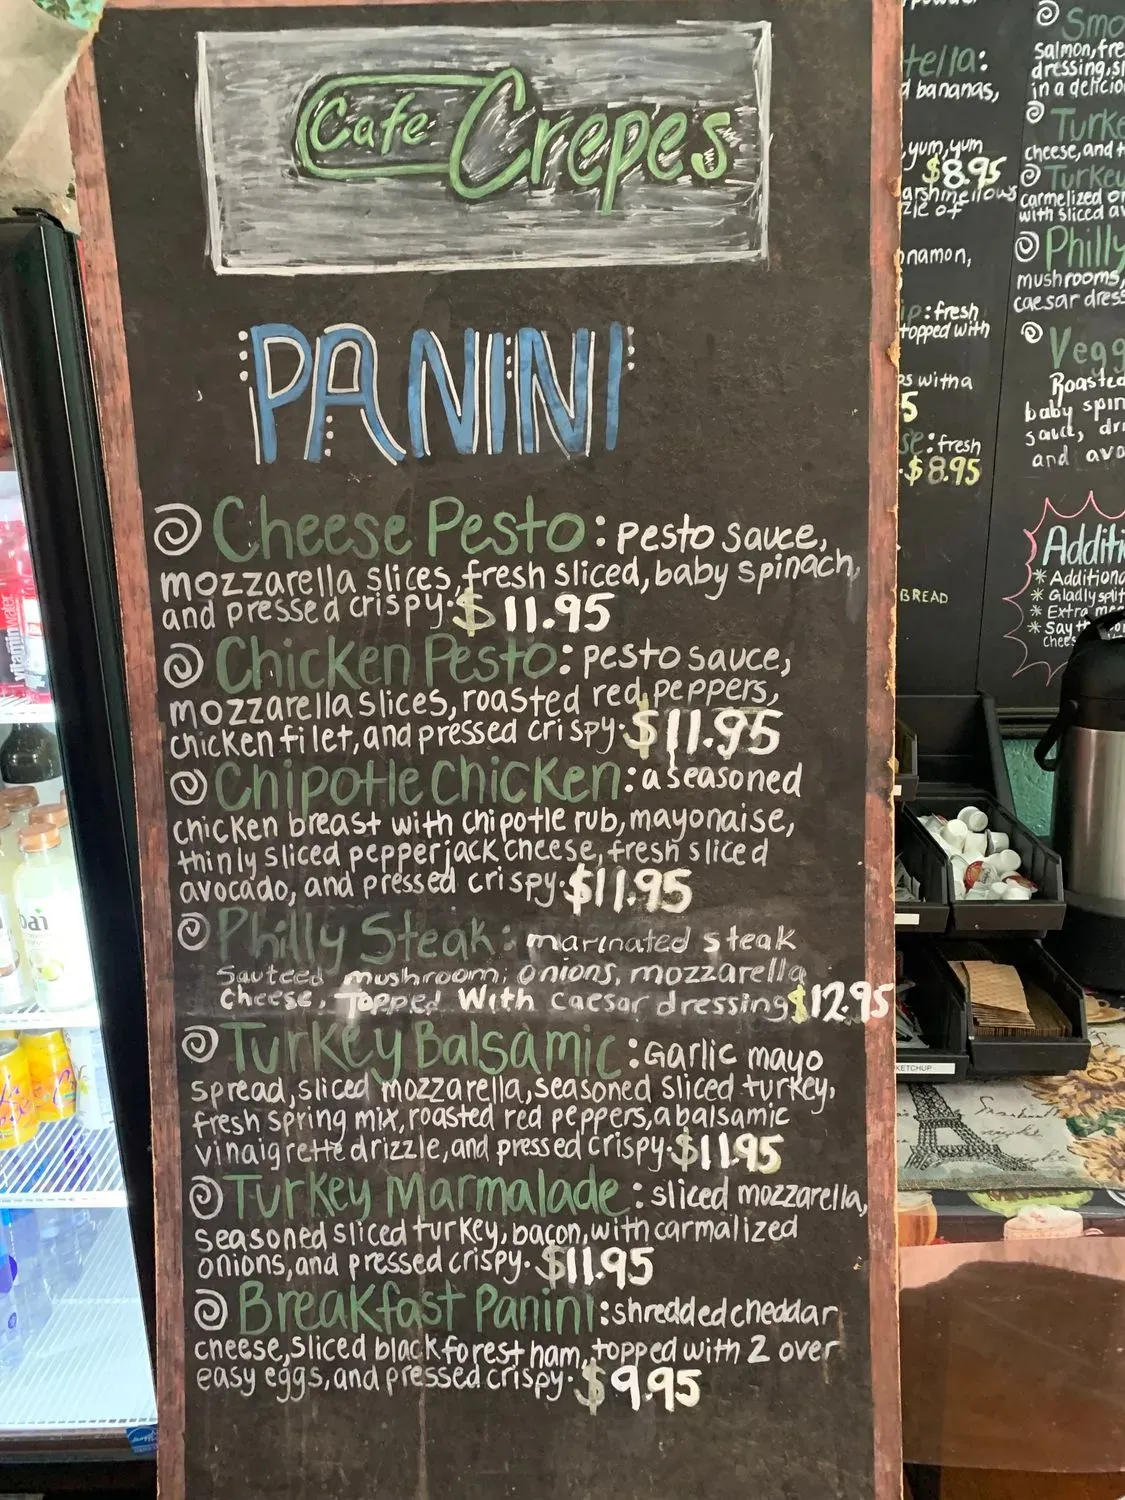 Cafe Crepes
PANINI
Cheese Pesto: pesto sauce,
mozzarella slices, fresh sliced, baby spinach,
and pressed crispy. $11.95
Chicken Pesto: pesto sauce,
mozzarella slices, roasted red peppers,
chicken filet, and pressed crispy. $11.95
Chipotle Chicken: a seasoned
chicken breast with chipotle rub, mayonaise,
thinly sliced pepperjack cheese, fresh sliced
avocado, and pressed crispy. $11.95
Philly Steak: marinated steak
sauteed mushroom, onions, mozzarella
cheese, Topped With caesar dressing $12.95
Turkey Balsamic: Garlic mayo
spread, sliced mozzarella, seasoned sliced turkey,
fresh spring mix, roasted red peppers, a balsamic
vinaigrette drizzle, and pressed crispy. $11.95
Turkey Marmalade: sliced mozzarella,
seasoned sliced turkey, bacon, with carmalized
onions, and pressed crispy. $11.95
Breakfast Panini: shredded cheddar
cheese, sliced black forest ham, topped with 2 over
easy eggs, and pressed crispy. $9.95
tella:
bananas,
yum, yum
$8.95
arshmellows
zle of
nnamon,
ip: fresh
topped with
s with a
5
se: fresh
$8.95
BREAD
Smo
salmon, fre
dressing, sl
in a delicio
Turke
cheese, and t
Turkey
carmelized on
with sliced av
Philly
mushrooms,
caesar dress
Vegg
Roasted
baby spin
sauce, dri
and avo
Additi
* Additiona
* Gladly split
* Extra me
* Say th
chees
KETCHUP
vitaminwater
bai